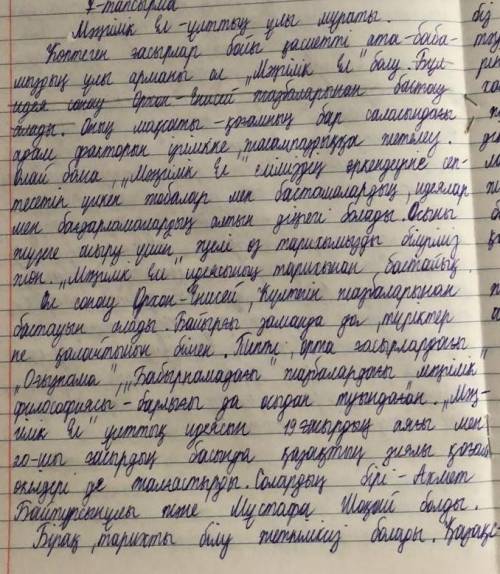 7-тапсырма
Мәңгілік Ел - ұлттың ұлы мұраты.
Көптеген ғасырлар бойы қасиетті ата-баба-
мыздың ұлы арманы ол "Мәңгілік Ел" болу. Бұл
идея сонау Орхон-Енисей жазбаларынан бастау
алады. Оның мақсаты - қоғамның бар саласындағы
адам факторын үғимкпе, талампаздыққа жетелеу.
олай болса, "Мәңгілік Ел" еліміздің өркендеуіне сеп-
тесетін үлкен жобалар мен бастамалардың, идеялар
мен бағдарламалардың алтын діңгегі болады. Осыны
жүзеге асыру үшін, әуелі өз тарихымызды білуіміз
жөн. "Мәңгілік Ел" идеясының тарихынан бастайық.
Ол сонау Орхон-Енисей, Күлтегін жазбаларынан
бастауын алады. Байырғы заманда да, түріктер
не қалайтынын білген. Тіпті, орта ғасырлардағы
"Оғызнама", "Бабырнамадағы" жазбалардағы мәңгілік
философиясы - барлығы да осыдан туындаған. "Мәң-
гілік Ел" ұлттық идеясын 19 ғасырдың аяғы мен
20-шы ғасырдың басында қазақтың зиялы қоғам
өкілдері де жалғастырды. Солардың бірі - Ахмет
Байтұрсынұлы және Мұстафа Шоқай болды.
Бірақ, тарихты білу жеткіліксіз болады. Қазақс-
біз